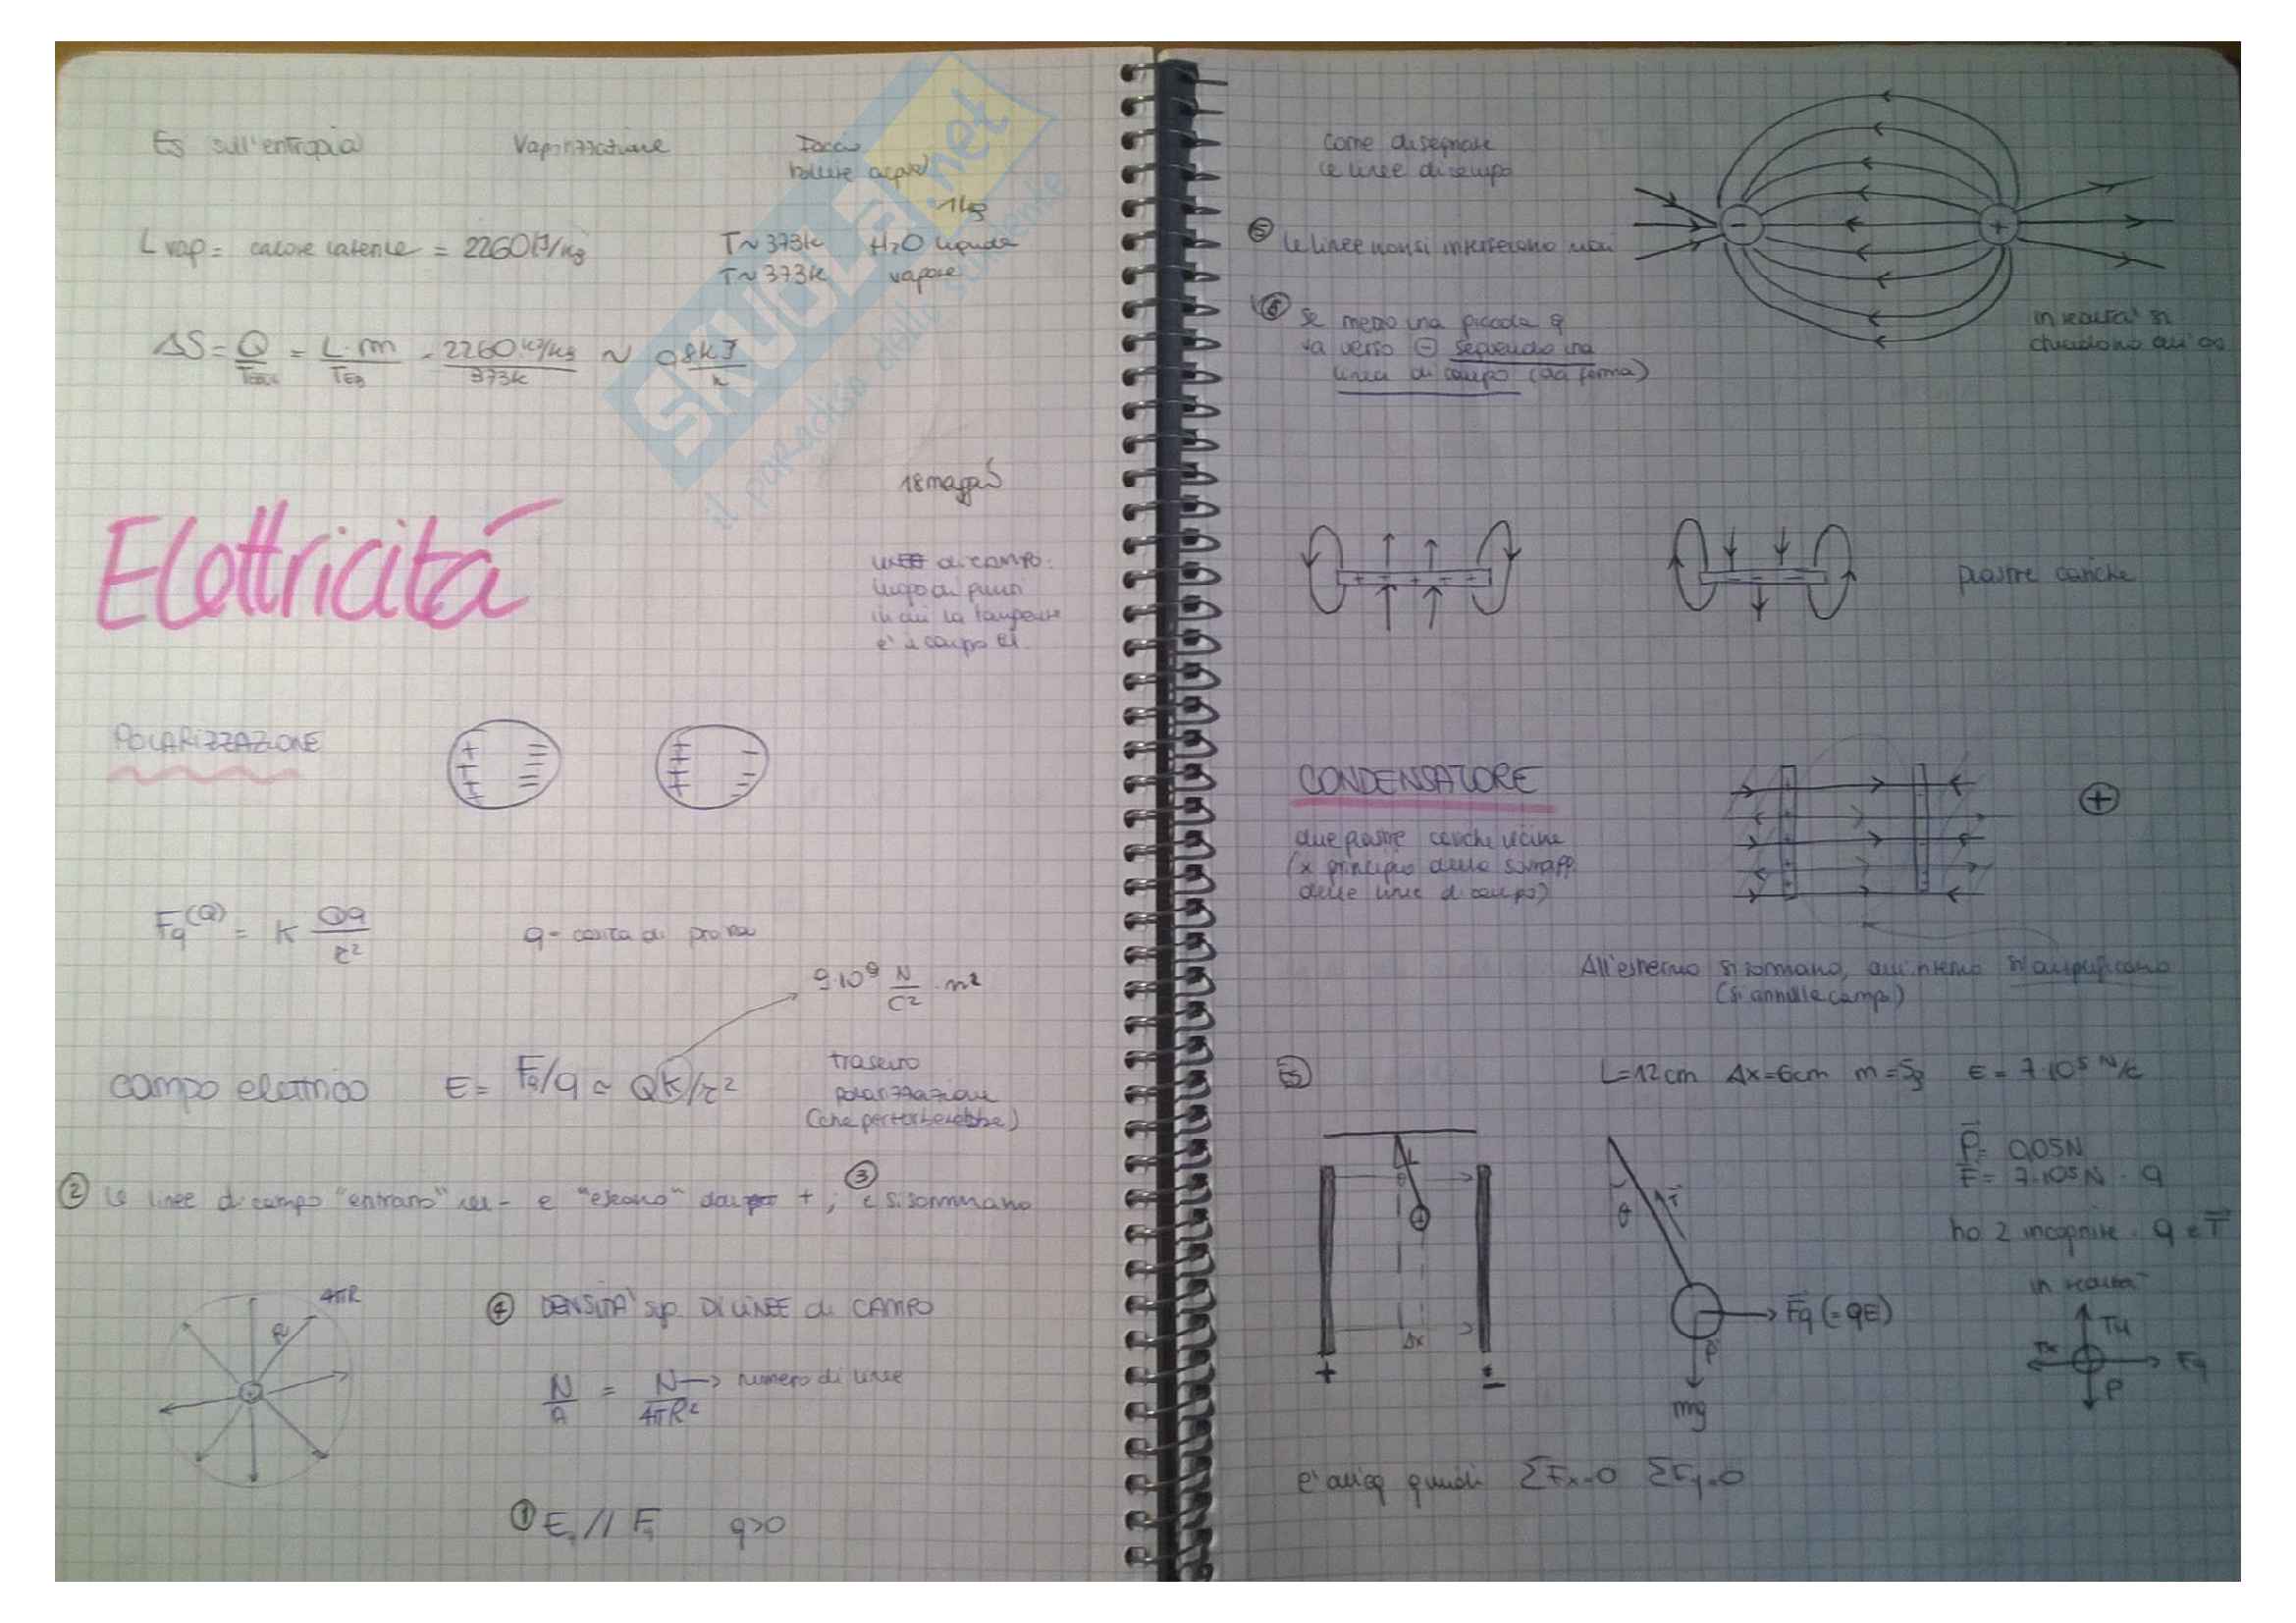 Es sull'entropia
Vaporizzazione
Faccio
bollire acqua
1kg
L vap = calore latente = 2260 kJ/kg
T~373k H2O liquida
T~373k vapore
ΔS = Q/TEQ = L·m/TEQ = 2260 kJ/kg / 373k ~ 0,8 kJ/k
SKUOLA.net
il paradiso dello studente
18 maggio
Elettricitá
linee di campo:
luogo di punti
in cui la tangente
e' il campo el.
POLARIZZAZIONE
Fq(Q) = K Qq/r²
q = carica di prova
9·10⁹ N/C² · m²
campo elettrico E = Fq/q ≃ QK/r²
trascuro
polarizzazione
(che perturberebbe)
② le linee di campo "entrano" nel - e "escono" dal + ; ③ e si sommano
4πR
R
④ DENSITA' sup. DI LINEE di CAMPO
N/A = N/4πR² → numero di linee
① Eq // Fq q>0
come disegnare
le linee di campo
⑤ le linee non si intersecano mai
- +
⑥ se metto una piccola q
va verso ⊖ seguendo una
linea di campo (dà forma)
in realta' si
chiudono all'∞
piastre cariche
CONDENSATORE
due piastre cariche vicine
(x principio della sovrapp.
delle linee di campo)
+
All'esterno si sommano, all'interno si amplificano
(si annulla campo)
Es
L=12cm Δx=6cm m=5g E = 7·10⁵ N/C
P = 0,05N
F = 7·10⁵N · q
ho 2 incognite: q e T
θ
T
Δx
+ -
Fq (=qE)
P
mg
in realta'
Ty
Tx Fq
P
e' all'eq quindi ΣFx=0 ΣFy=0